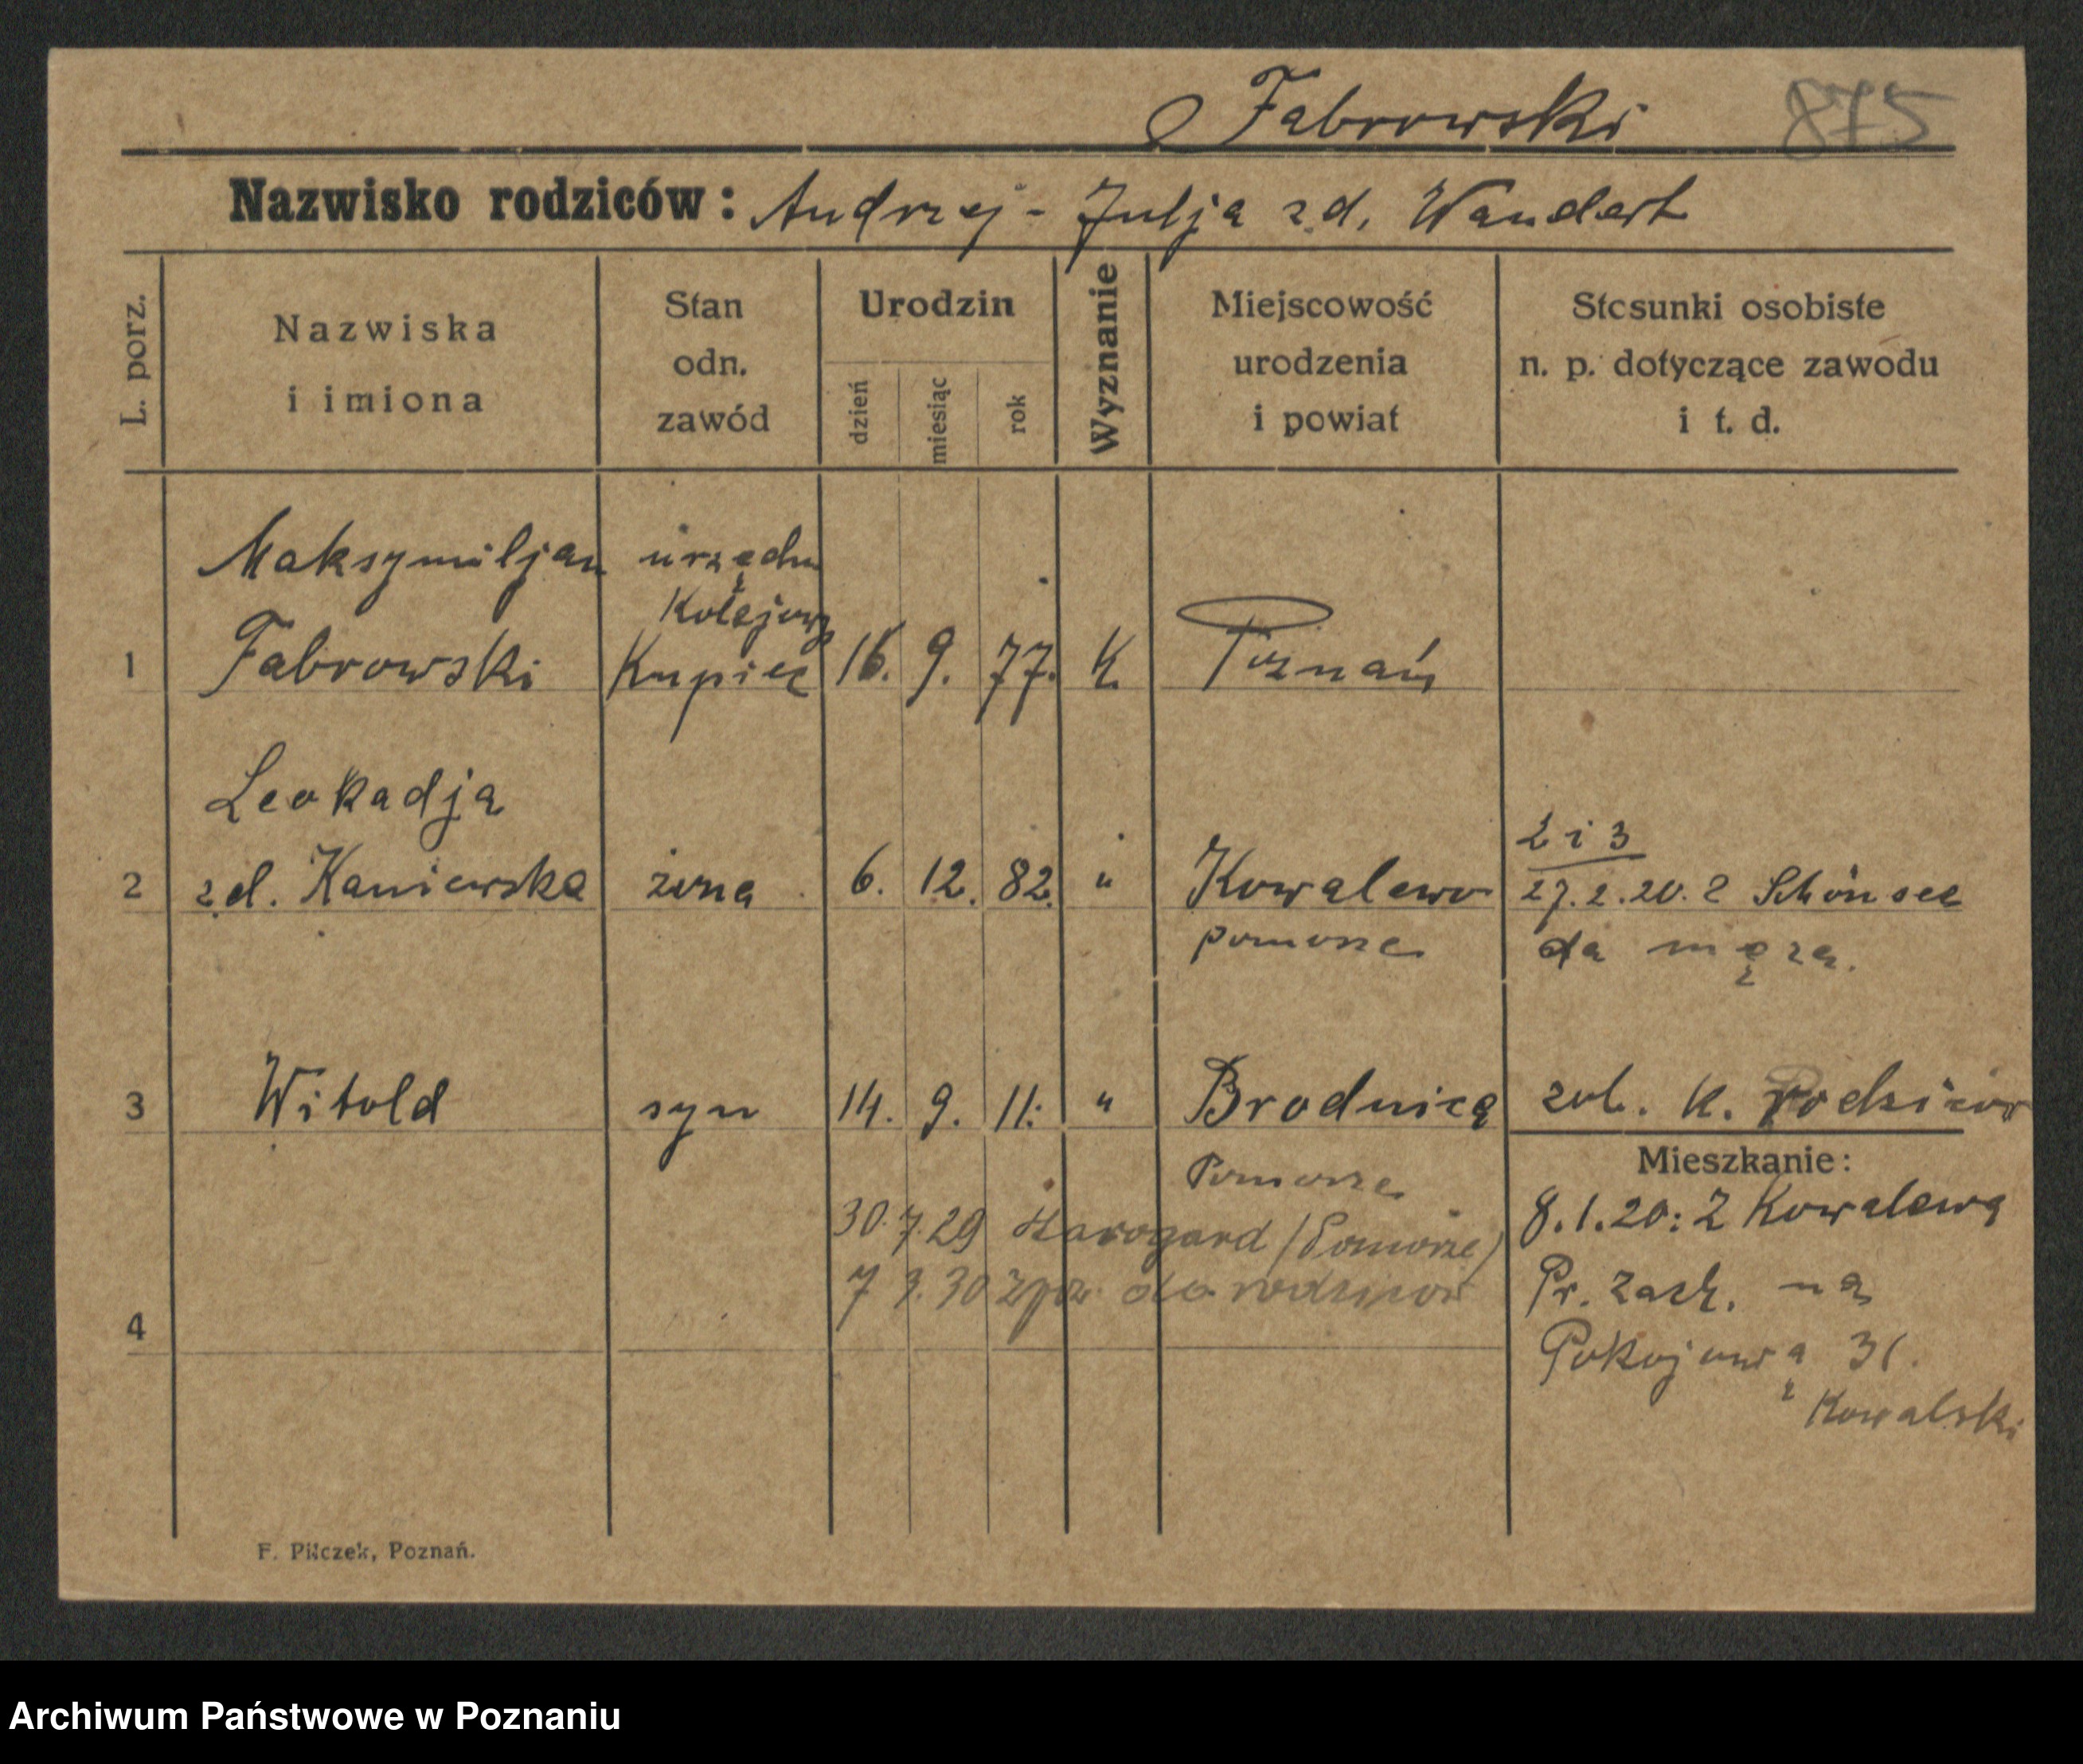 Fabrowski 875
Nazwisko rodziców: Andrzej - Julja zd. Wandelt
L. porz.
Nazwiska
i imiona
Stan
odn.
zawód
Urodzin
dzień
miesiąc
rok
Wyznanie
Miejscowość
urodzenia
i powiat
Stosunki osobiste
n. p. dotyczące zawodu
i t. d.
Maksymiljan urzędn
Kolejowy
1 Fabrowski Kupiec 16. 9. 77. K. Poznań
Leokadja
2 i 3
2 zd. Kaniewska żona 6. 12. 82. " Kowalewo 27.2.20. z Schönsee
pomorze do męża.
3 Witold syn 14. 9. 11. " Brodnica zob. k. rodziców
Mieszkanie:
Pomorze
8.1.20: Z Kowalewa
30.7.29 Starogard (Pomorze)
Pr. Zach. na
7 3.30 zpow. do rodziców
4
Pokojową 31.
z Kowalski
F. Pilczek, Poznań.
Archiwum Państwowe w Poznaniu